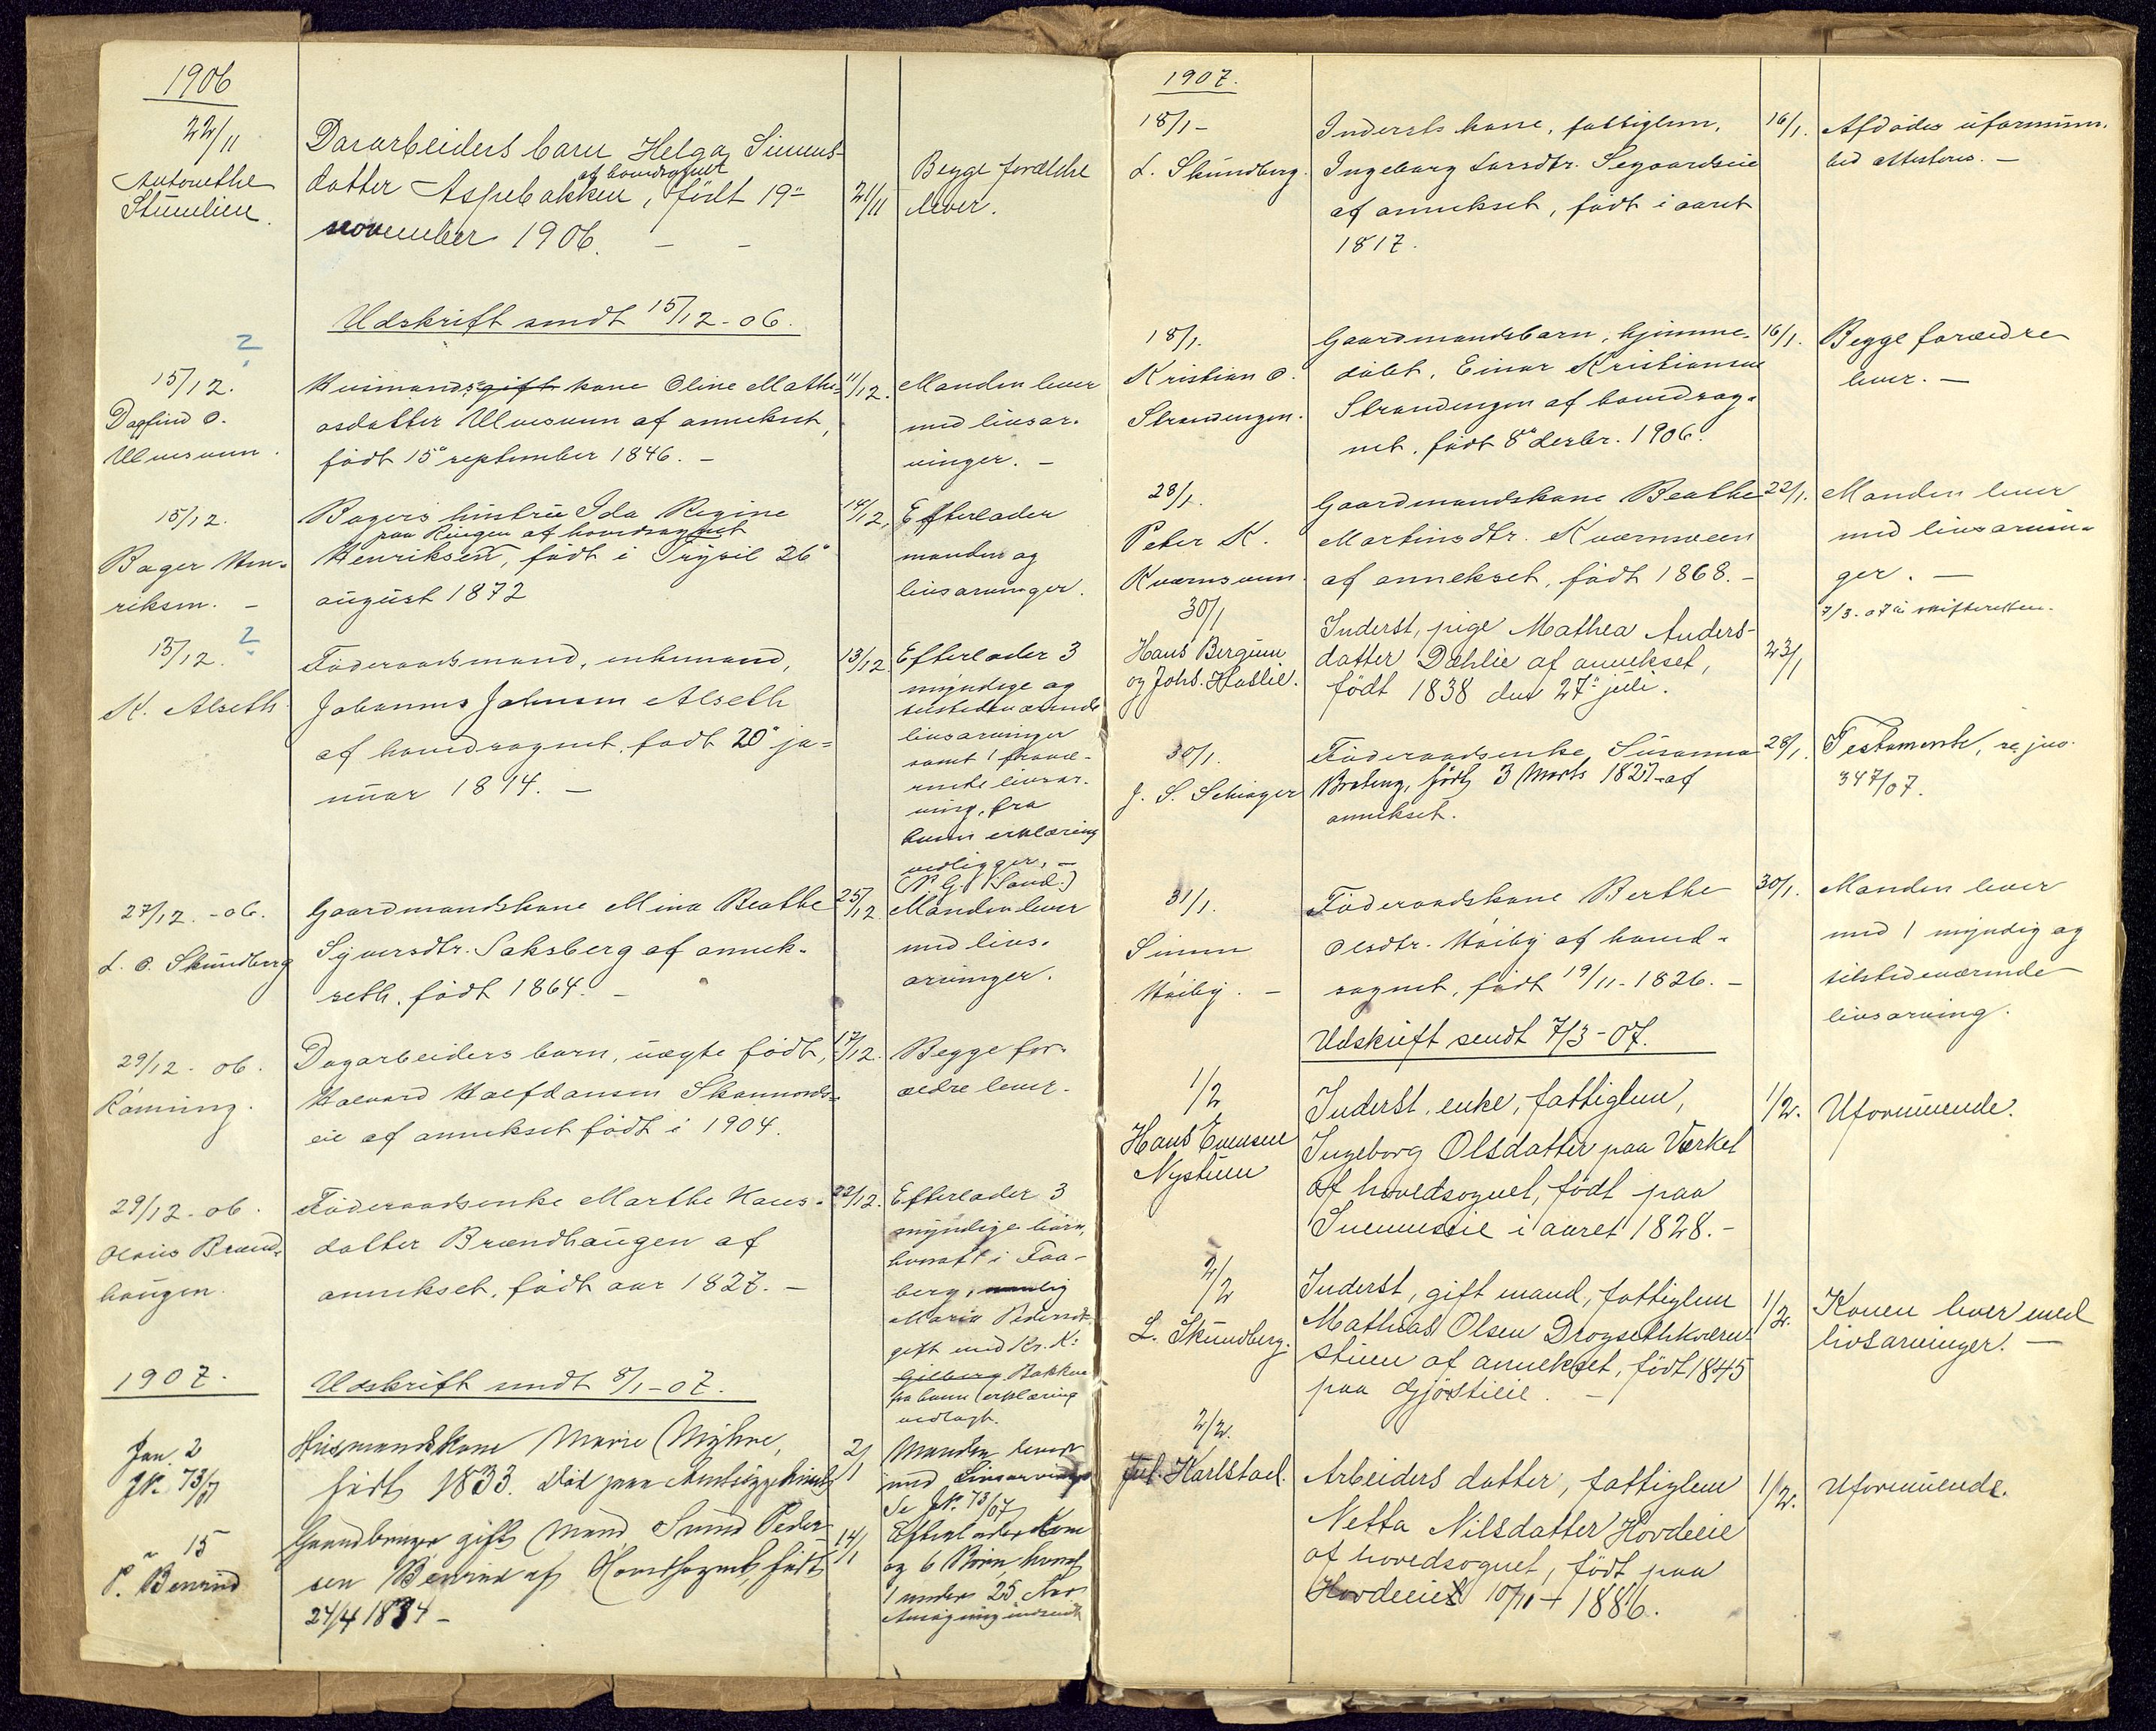 1906
22/11
Antonethe
Stuelien.
Dararbeiders barn Helga Simens-
af hovedsognet
datter Aspebakken, født 19"
november 1906. — —
21/11
Begge forældre
lever.
Udskrift sendt 15/12-06.
2
15/12.
Dagfind O.
Ulvesveen.
Husmands gift kone Oline Mathi-
asdatter Ulvesveen af annekset,
født 15" september 1846. —
11/12.
Manden lever
med livsar-
vinger. —
15/12.
Bager Hen-
riksen. —
Bagers hustru Ida Regine
paa Ringen af hovedsognet
Henriksen, født i Trysil 26"
august 1872
14/12.
Efterlader
manden og
livsarvinger.
15/12.
2
K. Alseth
Føderaadsmand, enkemand,
Johannes Johnsen Alseth
af hovedsognet, født 20" ja-
nuar 1814. —
13/12
Efterlader 3
myndige og
tilstedeværende
livsarvinger
samt 1 fravæ-
rende livsar-
ving, fra
hvem erklæring
vedligger. —
27/12. -06.
L. O. Skundberg
Gaardmandskone Mina Beathe
Syversdtr. Saksberg af annek-
seth, født 1864. —
25/12
Manden lever
med livs-
arvinger.
29/12. 06.
Rønning.
Dagarbeiders barn, uægte født,
Halvard Halfdansen
eie af annekset født i 1904.
17/12.
Begge for-
ældre lever.
29/12-06.
Olaus Brænd-
haugen.
Føderaadsenke Marthe Hans-
datter Brændhaugen af
annekset, født aar 1827. —
22/12.
Efterlader 3
myndige børn,
hvoraf 1 i Faa-
berg, nemlig
Maria Pedersdt.
gift med Kr. K.
Gilberg Bakken
fra hvem erklæring
vedlagt.
1907.
Udskrift sendt 8/1-07.
Jan. 2
JN. 73/07
Husmandskone Marie Myhre,
født 1833. Død paa
2/1
Manden lever
med Livsarvinger
Se JN. 73/07
" 15
P. Benrud
Gaardbruger gift Mand Svend Peder-
sen Benrud af Hovedsognet, født
24/4 1834 —
14/1
Efterlader Kone
og 6 Børn, hvoraf
1 under 25 Aar
Ansøgning indsendt
1907.
18/1 -
L. Skundberg.
Indersts kone, fattiglem,
Ingeborg Larsdtr. Segaardseie
af annekset, født i aaret
1817.
16/1.
Afdødes uformuen-
hed attesteres. —
18/1.
Kristian O.
Strandengen.
Gaardmandsbarn, hjemme-
døbt, Einar Kristiansen
Strandengen af hovedsog-
net, født 8de decbr. 1906.
16/1.
Begge forældre
lever. —
28/1.
Peter K.
Kværnsveen
Gaardmandskone Beathe
Martinsdtr. Kværnsveen
af annekset, født 1868. —
22/1.
Manden lever
med livsarvin-
ger. —
7/3-07 i skifteretten.
30/1
Hans Bergum
og Johs. Haslie.
Inderst, pige Mathea Anders-
datter Dæhlie af annekset,
født 1838 den 27" juli.
23/1
30/1.
J. S. Schiager
Føderaadsenke Susanna
Brateng, født 3 Marts 1827 af
annekset.
28/1.
Testamente, se jno.
347/07.
31/1.
Simen
Høiby. —
Føderaadskone Berthe
Olsdtr. Høiby af hoved-
sognet, født 19/11-1826. —
30/1.
Manden lever
med 1 myndig og
tilstedeværende
livsarving.
Udskrift sendt 7/3-07.
1/2
Hans Evensen
Nystuen
Inderst, enke, fattiglem,
Ingeborg Olsdatter paa Værket
af hovedsognet, født paa
i aaret 1828. —
1/2.
Uformuende.
2/2
L. Skundberg.
Inderst, gift mand, fattiglem
Mathias Olsen Drogsethkværn-
stuen af annekset, født 1845
paa Gjørstieie. —
1/2.
Konen lever med
livsarvinger. —
2/2.
Jul. Karlstad.
Arbeiders datter, fattiglem
Netta Nilsdatter Hovdeeie
af hovedsognet, født paa
Hovdeeie 10/11 1886.
1/2.
Uformuende.